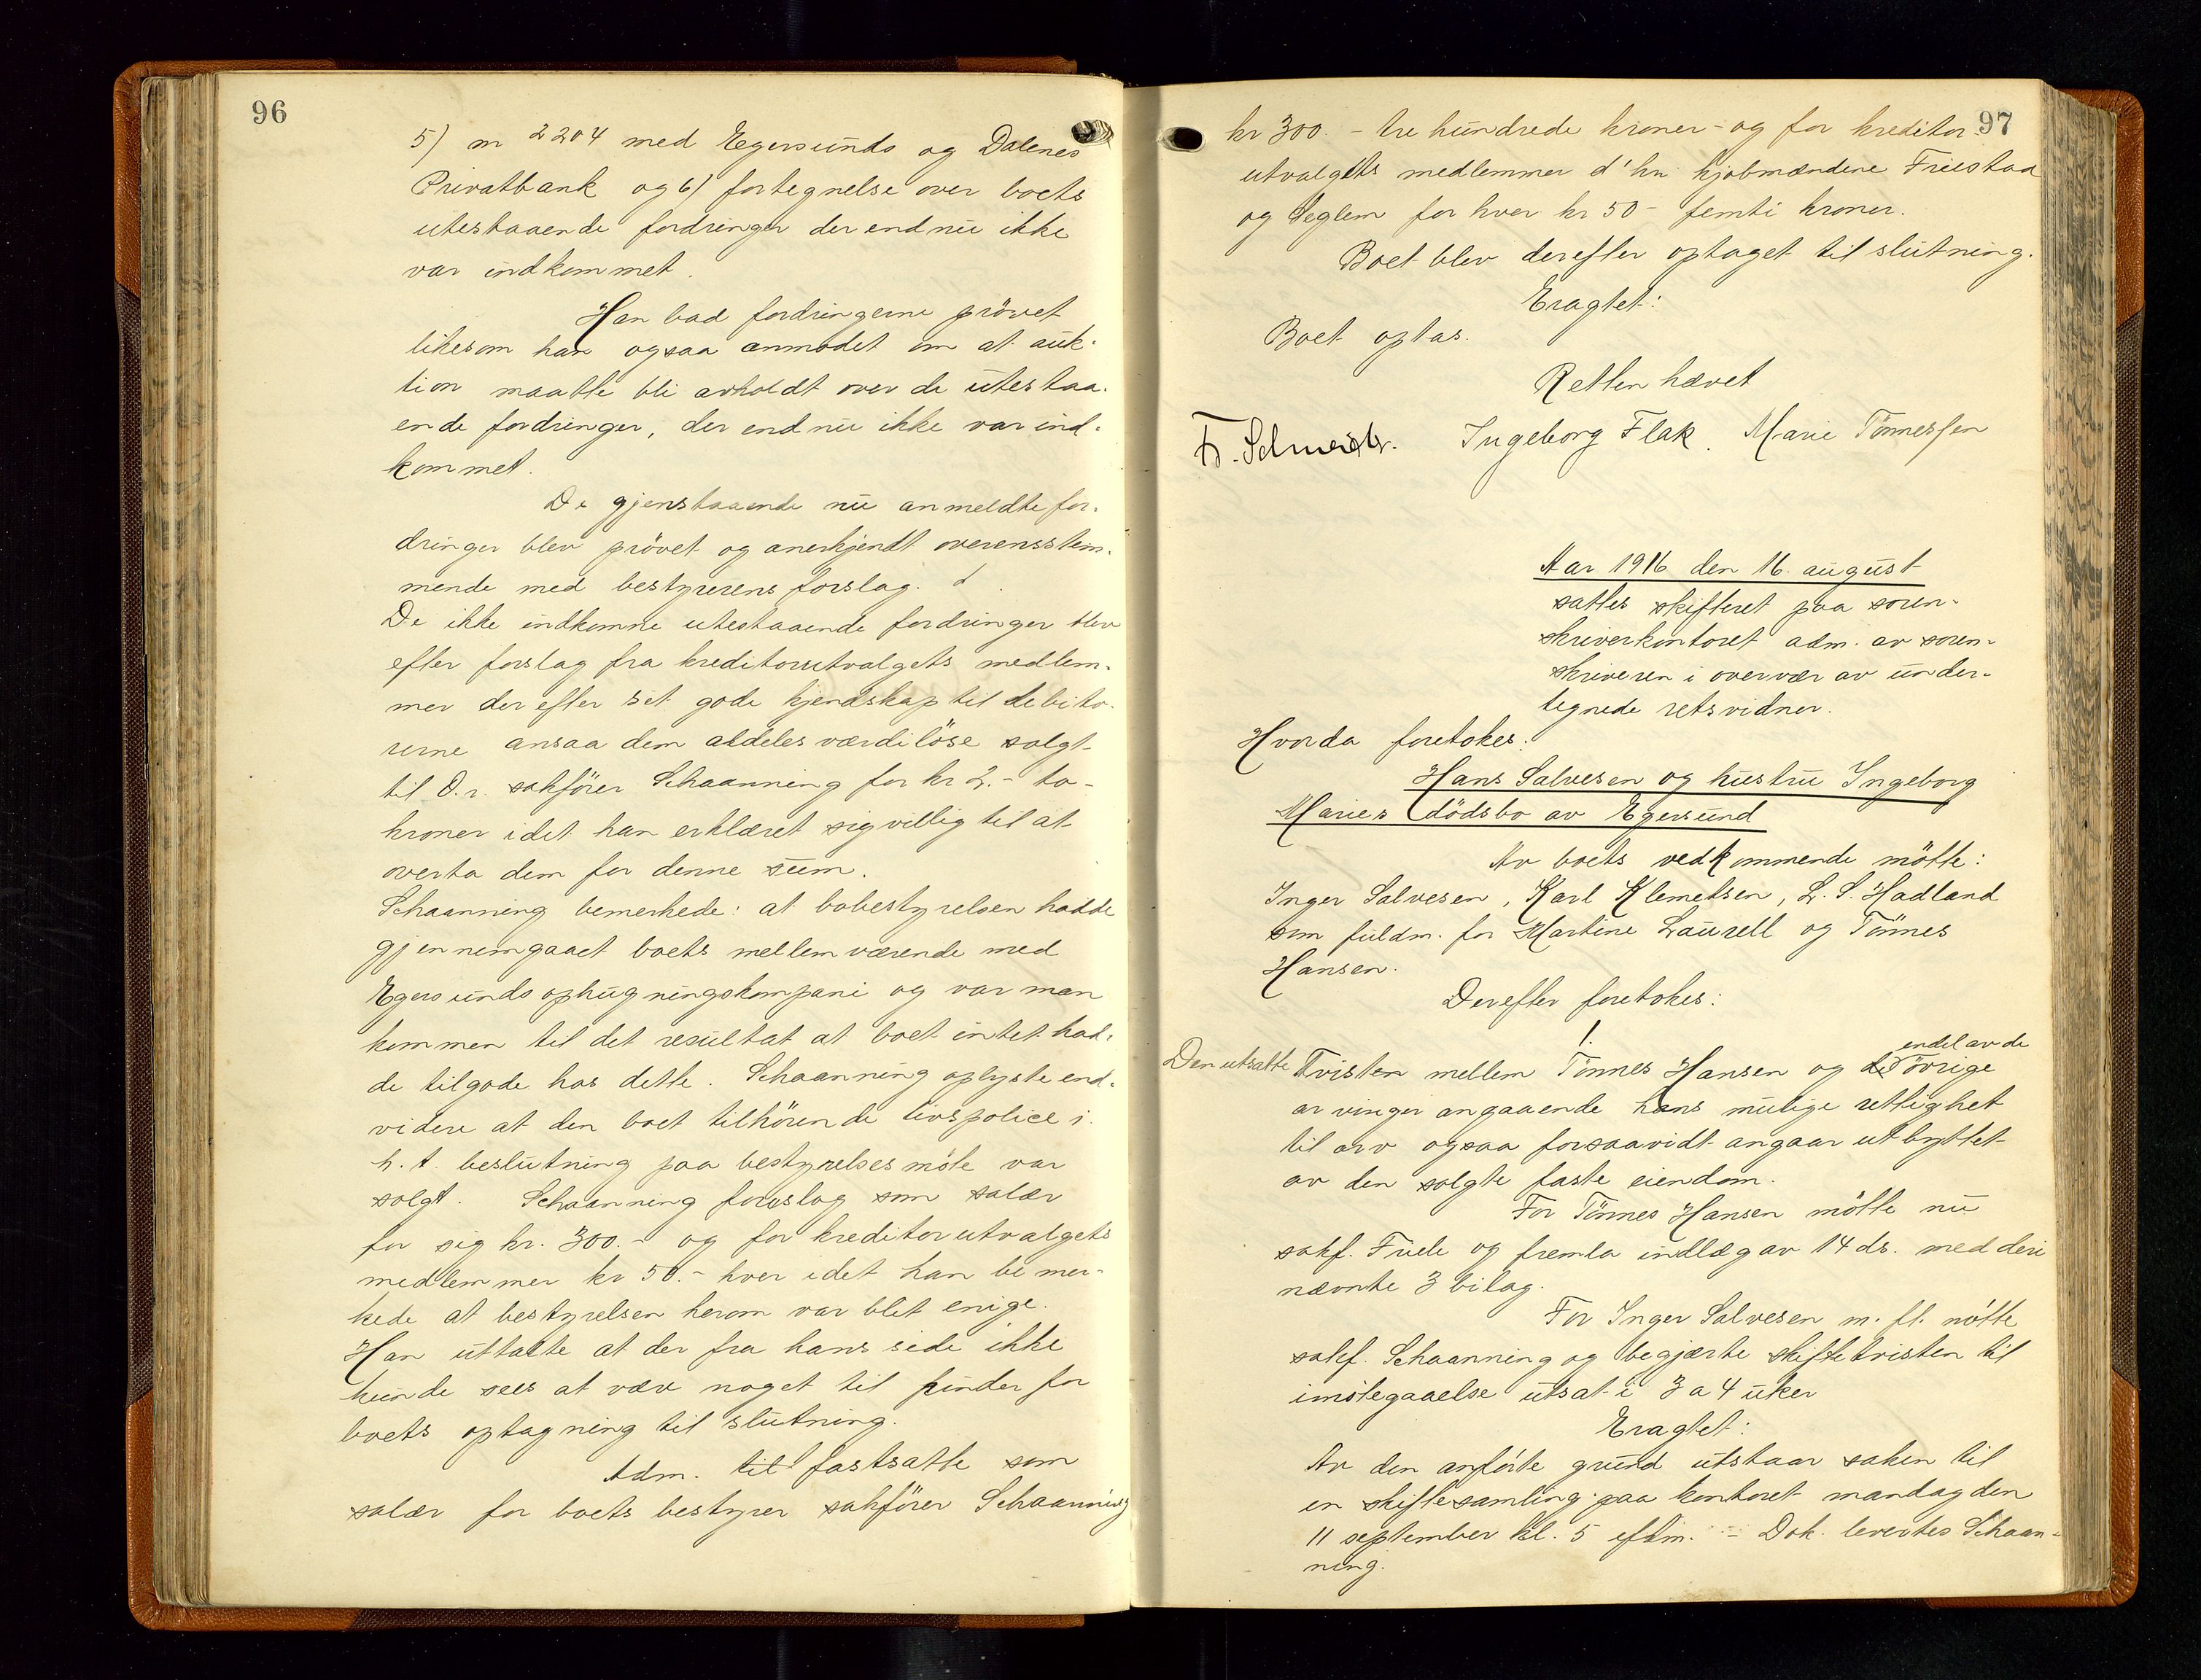 96
5) nr 2204 med Egersunds og Dalenes
Privatbank og 6) fortegnelse over boets
utestaaende fordringer der endnu ikke
var indkommet.
Han bad fordringerne prövet
likesom han ogsaa anmodet om at auk-
tion maatte bli avholdt over de utestaa-
ende fordringer, der endnu ikke var ind-
kommet.
De gjenstaaende nu anmeldte for-
dringer blev prövet og anerkjendt overensstem-
mende med bestyrerens forslag.
De ikke indkomne utestaaende fordringer blev
efter forslag fra kreditorutvalgets medlem-
mer der efter sit gode kjendskap til debito-
rerne ansaa dem aldeles værdilöse solgt
til O.r. sakförer Schaanning for kr 2.- to-
kroner idet han erklæret sig villig til at
overta dem for denne sum.
Schaanning bemerkede: at bobestyrelsen hadde
gjennemgaaet boets mellemværende med
Egersunds ophugningskompani og var man
kommen til det resultat at boet intet had-
de tilgode hos dette. Schaanning oplyste end-
videre at den boet tilhörende livspolice i
h. t. beslutning paa bestyrelsesmöte var
solgt. Schaanning foreslog som salær
for sig kr. 300.- og for kreditorutvalgets
medlemmer kr 50.- hver idet han bemer-
kede at bestyrelsen herom var blet enige.
Han uttalte at der fra hans side ikke
kunde sees at være noget til hinder for
boets optagning til slutning.
Adm. til fastsatte som
salær for boets bestyrer sakförer Schaanning
97
kr 300.- tre hundrede kroner - og for kreditor-
utvalgets medlemmer d'hr. kjöbmændene Friestad
og Seglem for hver kr 50 - femti kroner.
Boet blev derefter optaget til slutning.
Eragtet:
Boet optas.
Retten hævet
Fr. Schmidt. Ingeborg Flak. Marie Tönnessen
Aar 1916 den 16 august
sattes skifteret paa soren-
skriverkontoret adm. av soren-
skriveren i overvær av under-
tegnede retsvidner.
Hvorda foretokes:
Hans Salvesen og hustru Ingeborg
Maries dödsbo av Egersund
Av boets vedkommende mötte:
Inger Salvesen, Karl Klemetsen, L. S. Hadland
som fuldm. for Martine Laurell og Tönnes
Hansen.
Derefter foretokes:
1.
endel av de
Den utsatte Tvisten mellem Tönnes Hansen og de övrige
arvinger angaaende hans mulige rettighet
til arv ogsaa forsaavidt angaar utbyttet
av den solgte faste eiendom.
For Tönnes Hansen mötte nu
sakf. Fuele og fremla indlæg av 14 ds. med deri
nævnte 3 bilag.
For Inger Salvesen m. fl. mötte
sakf. Schaanning og begjærte skiftetvisten til
imötegaaelse utsat i 3 a 4 uker
Eragtet:
Av den anförte grund utstaar saken til
en skiftesamling paa kontoret mandag den
11 september kl. 5 eftm. - Dok. levertes Schaan-
ning.